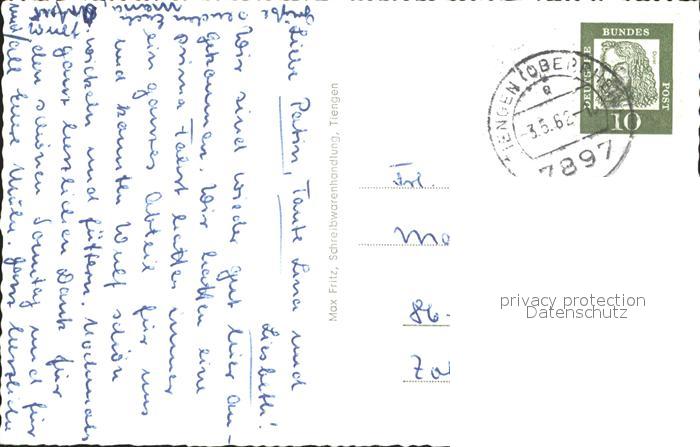 Liebe Patin, Tante Lina und
Lisbeth!
Wir sind wieder gut hier an-
gekommen. Wir hatten eine
prima Fahrt hatten immer
ein ganzes Abteil für uns
und konnten Wulf schön
wickeln und füttern. Nochmals
ganz herzlichen Dank für
den schönen Sonntag und für
all eure Mühe ganz herzliche
Max Fritz, Schreibwarenhandlung, Tiengen
Frl.
86
TIENGEN (OBERRHEIN)
a
-3.5.62-
7897
DEUTSCHE
BUNDES
POST
Dürer
10
privacy protection
Datenschutz